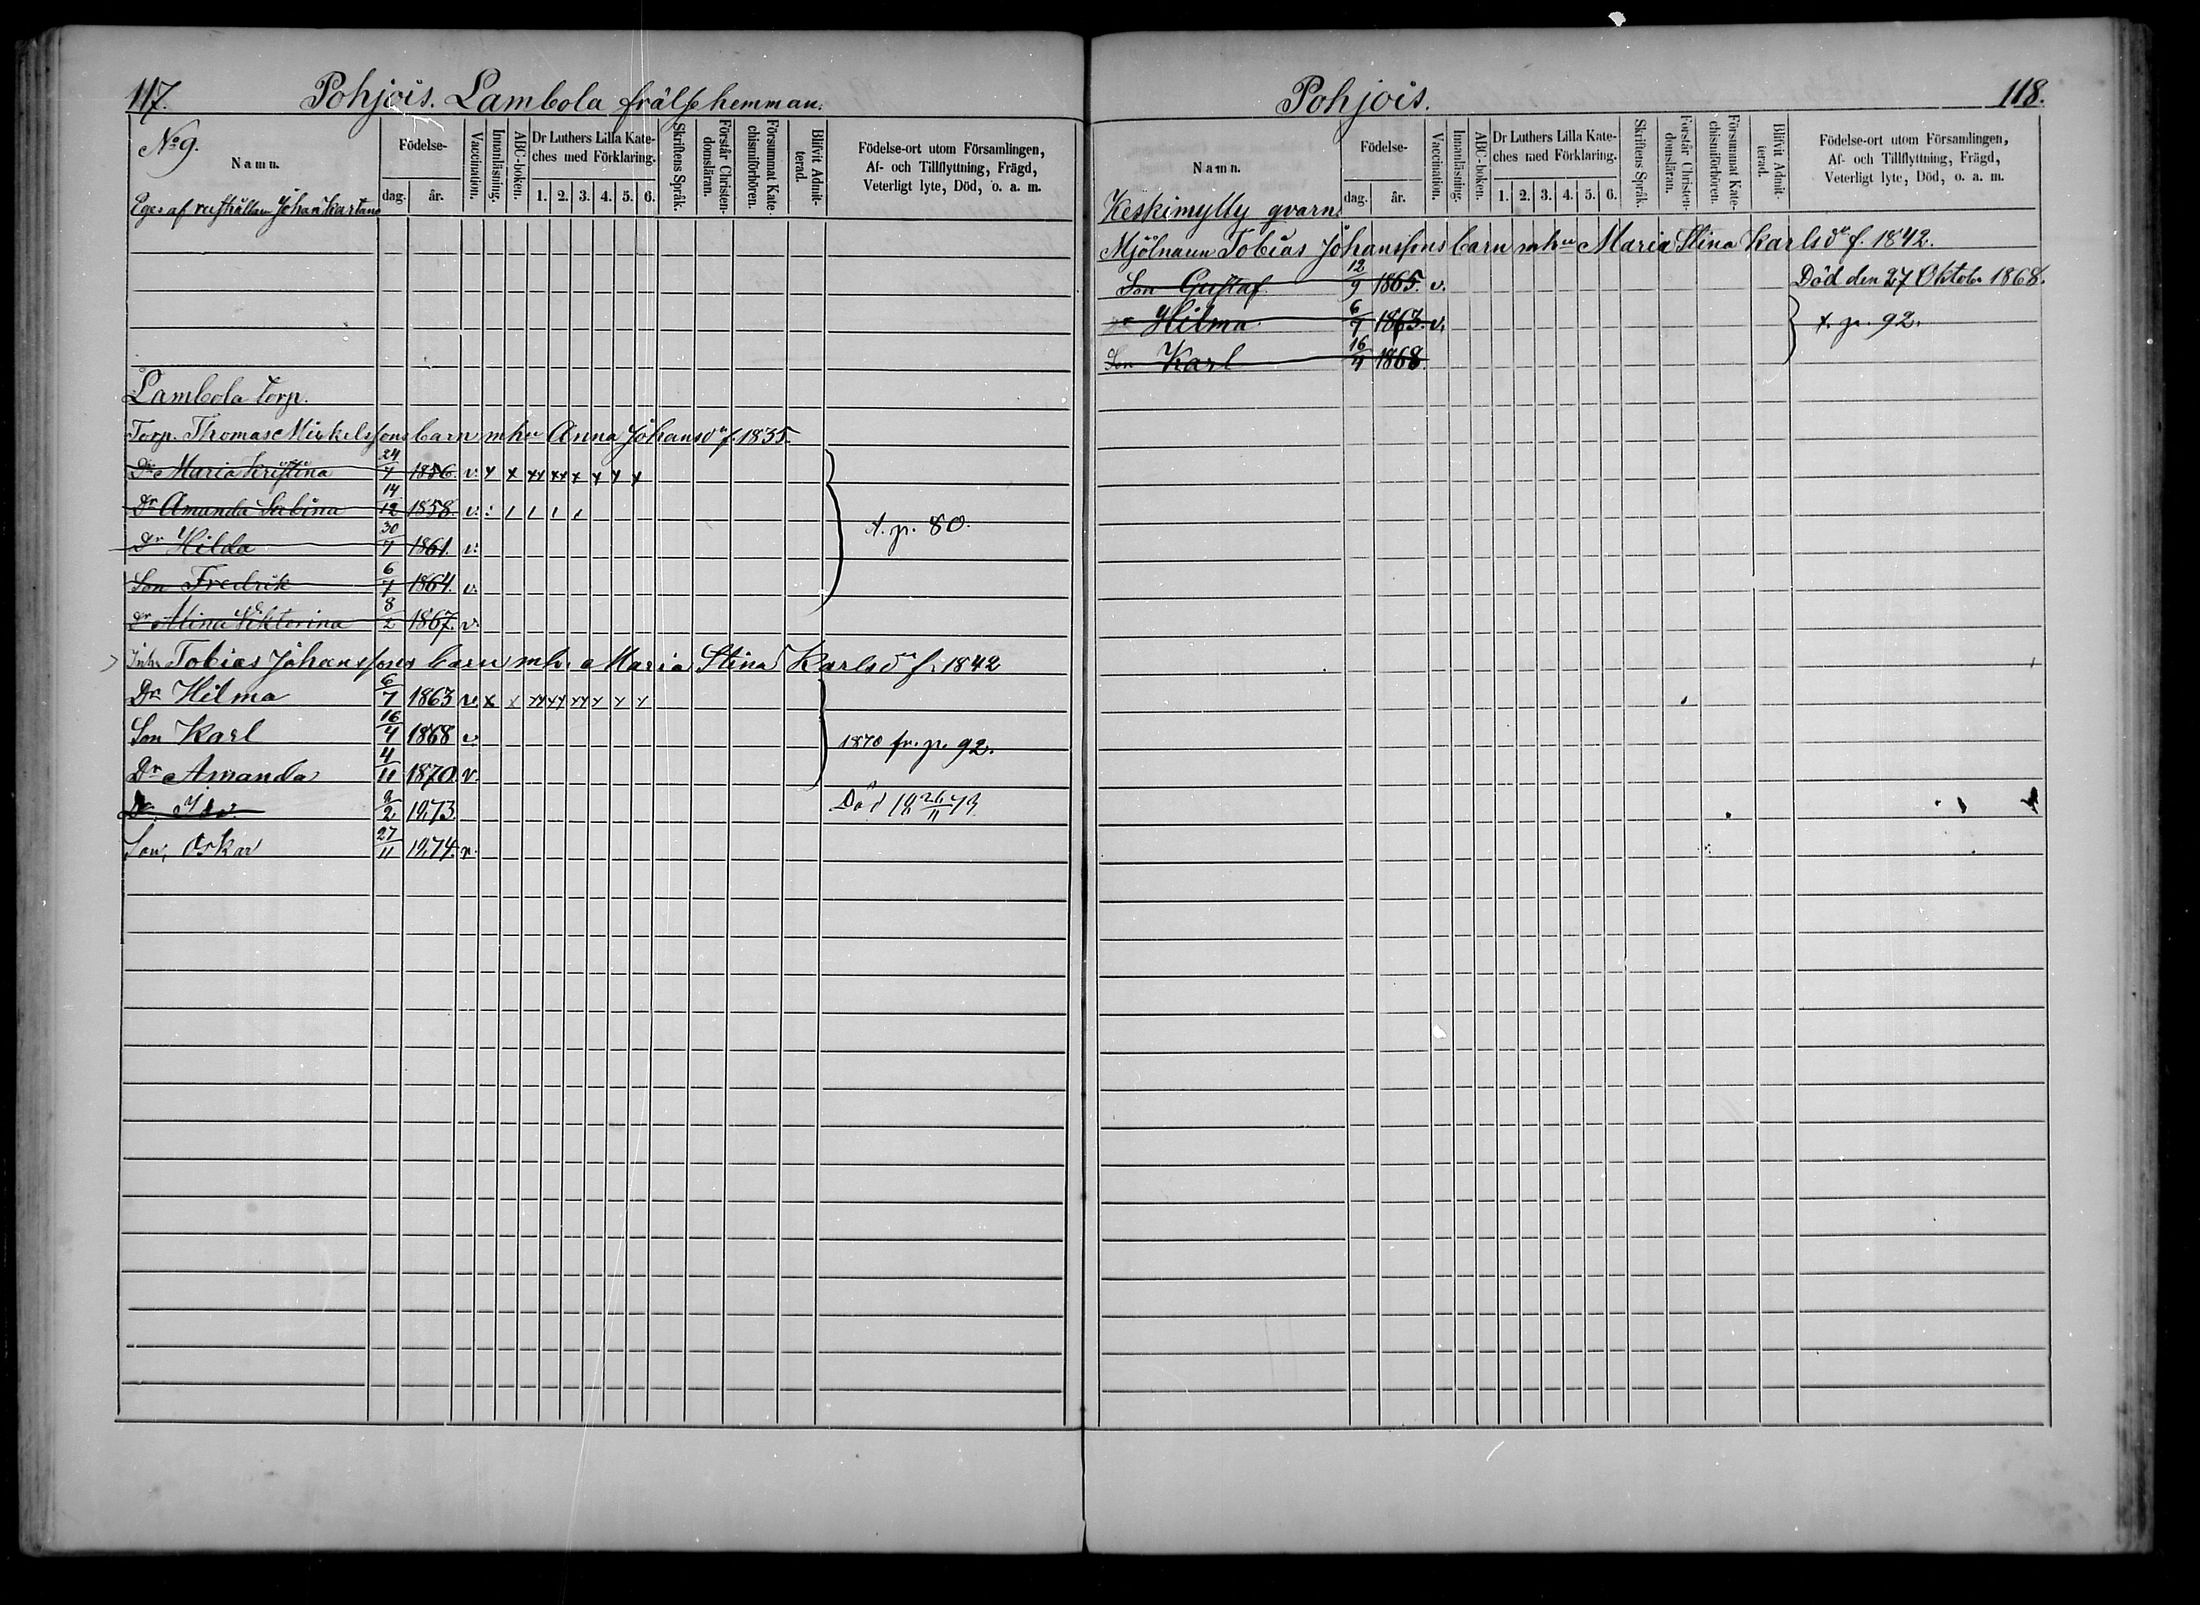 117. Pohjois. Lambola frälsehemman.
No 9.
Namn.
Födelse-
dag. år.
Vaccination.
Innanläsning.
ABC-boken.
Dr Luthers Lilla Kate-
ches med Förklaring.
1. 2. 3. 4. 5. 6.
Skriftens Språk.
Förstår Christen-
domsläran.
Försummat Kate-
chismiförhören.
Blifvit Admit-
terad.
Födelse-ort utom Församlingen,
Af- och Tillflyttning, Frägd,
Veterligt lyte, Död, o. a. m.
Eges af rusthållare Johan Kartano
Lambola torp.
Torp. Thomas Mickelssons barn mhu Anna Johansdr f. 1835.
Dr Maria Kristina 24/7 1856. v. x x xx xx x x x x
Dr Amanda Sabina 14/12 1858. v.
Dr Hilda 30/7 1861. v.
t. p. 80.
Son Fredrik 6/7 1864. v.
Dr Mina Viktorina 8/2 1867. v.
Inh. Tobias Johanssons barn mh. Maria Stina Karlsdr f. 1842
Dr Hilma 6/7 1863 v. x x xx xx xx x x x
Son Karl 16/4 1868 v.
1870 fr. p. 92.
Dr Amanda 4/11 1870. v.
Dr Ida 9/2 1873 Död 18 26/11 73
Son, Oskar 27/11 1874. v.
Pohjois. 118.
Namn.
Födelse-
dag. år.
Vaccination.
Innanläsning.
ABC-boken.
Dr Luthers Lilla Kate-
ches med Förklaring.
1. 2. 3. 4. 5. 6.
Skriftens Språk.
Förstår Christen-
domsläran.
Försummat Kate-
chismiförhören.
Blifvit Admit-
terad.
Födelse-ort utom Församlingen,
Af- och Tillflyttning, Frägd,
Veterligt lyte, Död, o. a. m.
Keskimylly qvarn
Mjölnaren Tobias Johanssons barn mhu Maria Stina Karlsdr f. 1842.
Son Gustaf 12/9 1865. v. Död den 27 Oktob. 1868.
Dr Hilma 6/7 1863. v. t. p. 92.
Son Karl 16/4 1868